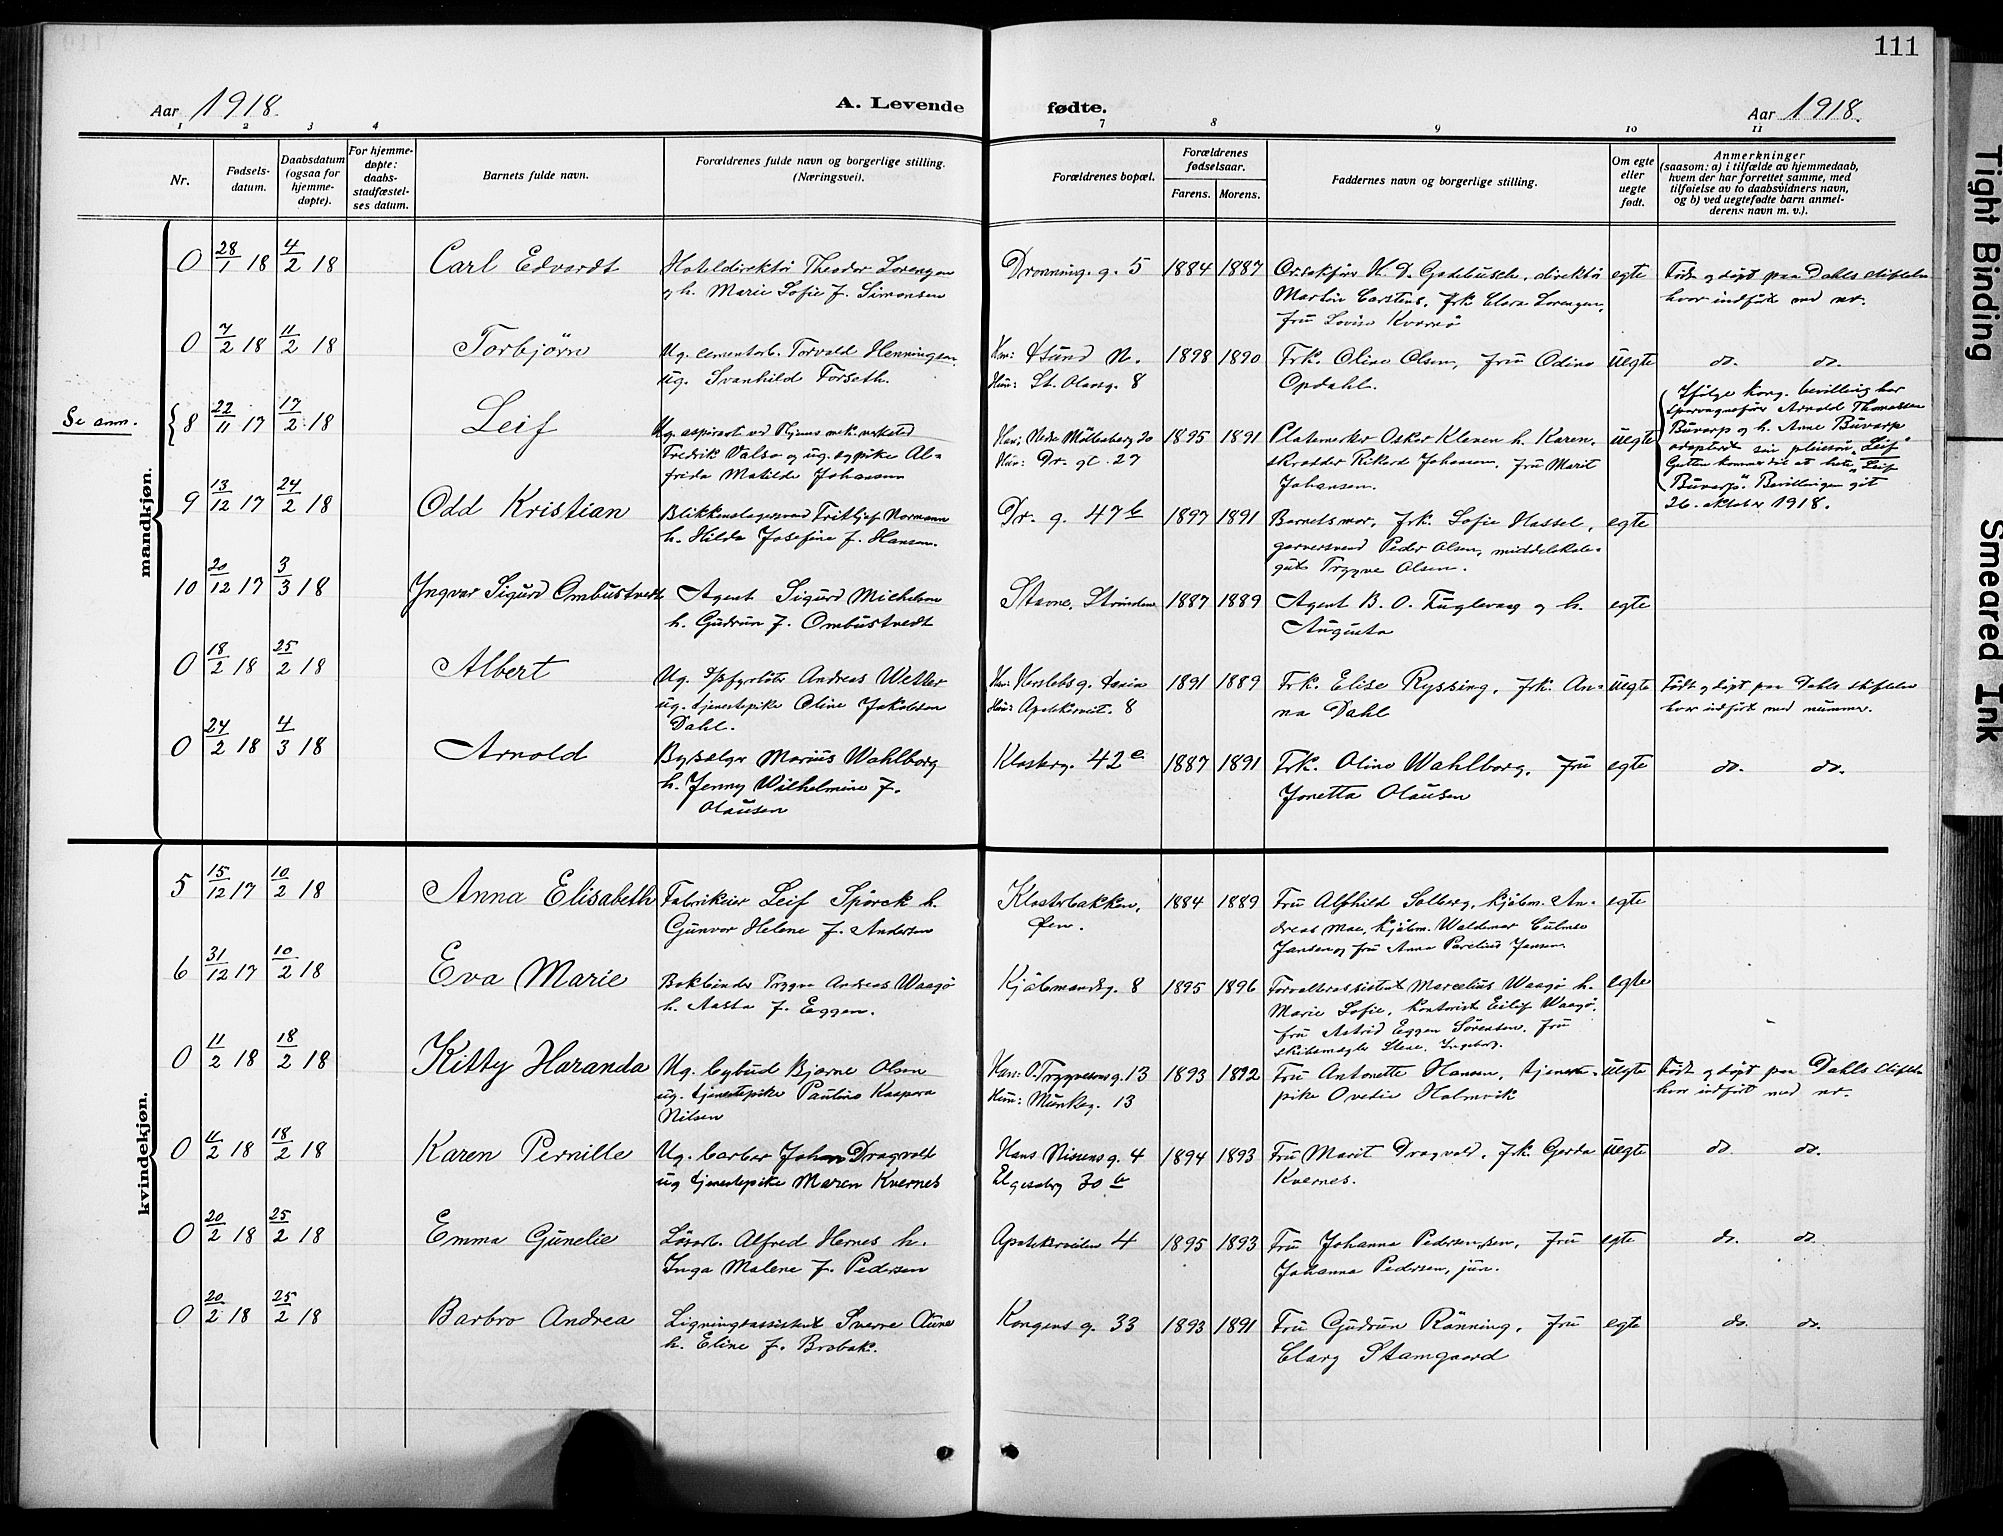 111
Aar 1918. A. Levende fødte. Aar 1918.
1 2 3 4 7 8 9 10 11
Nr.
Fødsels-
datum.
Daabsdatum
(ogsaa for
hjemme-
døpte).
For hjemme-
døpte:
daabs-
stadfæstel-
ses datum.
Barnets fulde navn.
Forældrenes fulde navn og borgerlige stilling.
(Næringsvei).
Forældrenes bopæl.
Forældrenes
fødselsaar.
Farens. Morens.
Faddernes navn og borgerlige stilling.
Om egte
eller
uegte
født.
Anmerkninger
(saasom: a) i tilfælde av hjemmedaab,
hvem der har forrettet samme, med
tilføielse av to daabsvidners navn,
og b) ved uegtefødte barn anmel-
derens navn m. v.).
mandkjøn.
0 28/1 18 4/2 18 Carl Edvardt Hoteldirektør Theodor Lorengen Dronning. g. 5 1884 1887 direktør egte Født og døpt paa Dahls stiftelse
h. Marie Sofie f. Simonsen Martin Carstens, frk Clara Lorengen, hvor indført med nr.
fru Lovise Kvernø
0 7/2 18 11/2 18 Torbjørn Ug. cementarb. Torvald Henningsen Han: N. 1898 1890 Frk. Oline Olsen, fru Odine uegte do. do.
ug. Svanhild Forseth. Hun: St. Olavsg. 8 Opdahl.
Se anm.
8 22/11 17 17/2 18 Leif Ug. aspirant ved mek. verksted Han: Nedre Møllenberg 20 1895 1891 Platemerker Oskar Kleven h. Karen, uegte
Fredrik Valsø og ug. sypike Al- Hun: Dr. gt. 27 skrædder Rikard Johansen, fru Marit
frida Matilde Johansen Johansen.
Ifølge kong. bevilling har
sporvognsfører Arnold Thomassen
Buvarp og h. Anne Buvarp
adoptert sin pleiesøn "Leif"
Gutten kommer til at hete "Leif
Buvarp". Bevillingen git
26. oktober 1918.
9 13/12 17 24/2 18 Odd Kristian Blikkenslagersvend Fritljof Normann Dr. g. 47 b 1897 1891 Barnets mor, frk. Sofie Hassel, egte
h. Hilda Josefine f. Hansen. garversvend Peder Olsen, middelskole-
gut Trygve Olsen.
10 20/12 17 3/3 18 Ingvar Sigurd Ombustvedt Agent Sigurd Michelsen Stavne, Strinden 1887 1889 Agent B. O. Fuglevaag og h. egte
h. Gudrun f. Ombustvedt Augusta
0 18/2 18 25/2 18 Albert Ug. Andreas Wetter Han: Herslebs g. 1891 1889 Frk. Elise Ryssing, frk. An- uegte Født og døpt paa Dahls stiftelse
ug. tjenestepike Oline Jakobsen Hun: Apotekerveit. 8 na Dahl hvor indført med nummer.
Dahl.
0 24/2 18 4/3 18 Arnold Bysælger Marius Wahlborg Klosterg. 42 a 1887 1891 Frk. Oline Wahlborg, fru egte do. do.
h. Jenny Wilhelmine f. Jonetta Olausen
Olausen
kvindekjøn.
5 15/12 17 10/2 18 Anna Elisabeth Fabrikeier Leif Spørck h. Klosterbakken, 1884 1889 Fru Alfhild Solberg, kjøbm. An- egte
Gunvor Helene f. Andersen Øen. dreas Moe, kjøbm. Waldemar Culmsee
Jansen og fru Anna Parelius Jansen
6 31/12 17 10/2 18 Eva Marie Bokbinder Trygve Andreas Waagø Kjøbmandsg. 8 1895 1896 Forvalterassistent Marcelius Waagø h. egte
h. Aasta f. Eggen. Marie Sofie, kontorist Eilif Waagø,
fru Astrid Eggen Sørensen, fru
skibsmægler Stene, Ingeborg.
0 11/2 18 18/2 18 Kitty Haranda Ug. bybud Bjarne Olsen Han: O. Trygvesøns g. 13 1893 1892 Fru Antonette Hansen, tjeneste- uegte Født og døpt paa Dahls stiftelse
ug. tjenestepike Pauline Kaspara Hun: Munkeg. 13 pike Ovedie Holmvik hvor indført med nr.
Nilsen
0 11/2 18 18/2 18 Karen Pernille Ug. barber Johan Dragvold Hans Nissens g. 4 1894 1893 Fru Marit Dragvold, frk. Gerda uegte do. do.
ug tjenestepike Maren Kvernes Elgesetерg 30 b Kvernes.
0 20/2 18 25/2 18 Emma Gunelie Løsarb. Alfred Hernes h. Apotekerveiten 4 1895 1893 Fru Johanna Pedersen, sen, fru egte do. do.
Inga Malene f. Pedersen Johanna Pedersen, jun.
0 20/2 18 25/2 18 Barbro Andrea Ligningsassistent Sverre Aune Kongens g. 33 1893 1891 Fru Gudrun Rønning, fru egte do. do.
h. Eline f. Brobak. Clary Stamgaard
Tight Binding
Smeared Ink